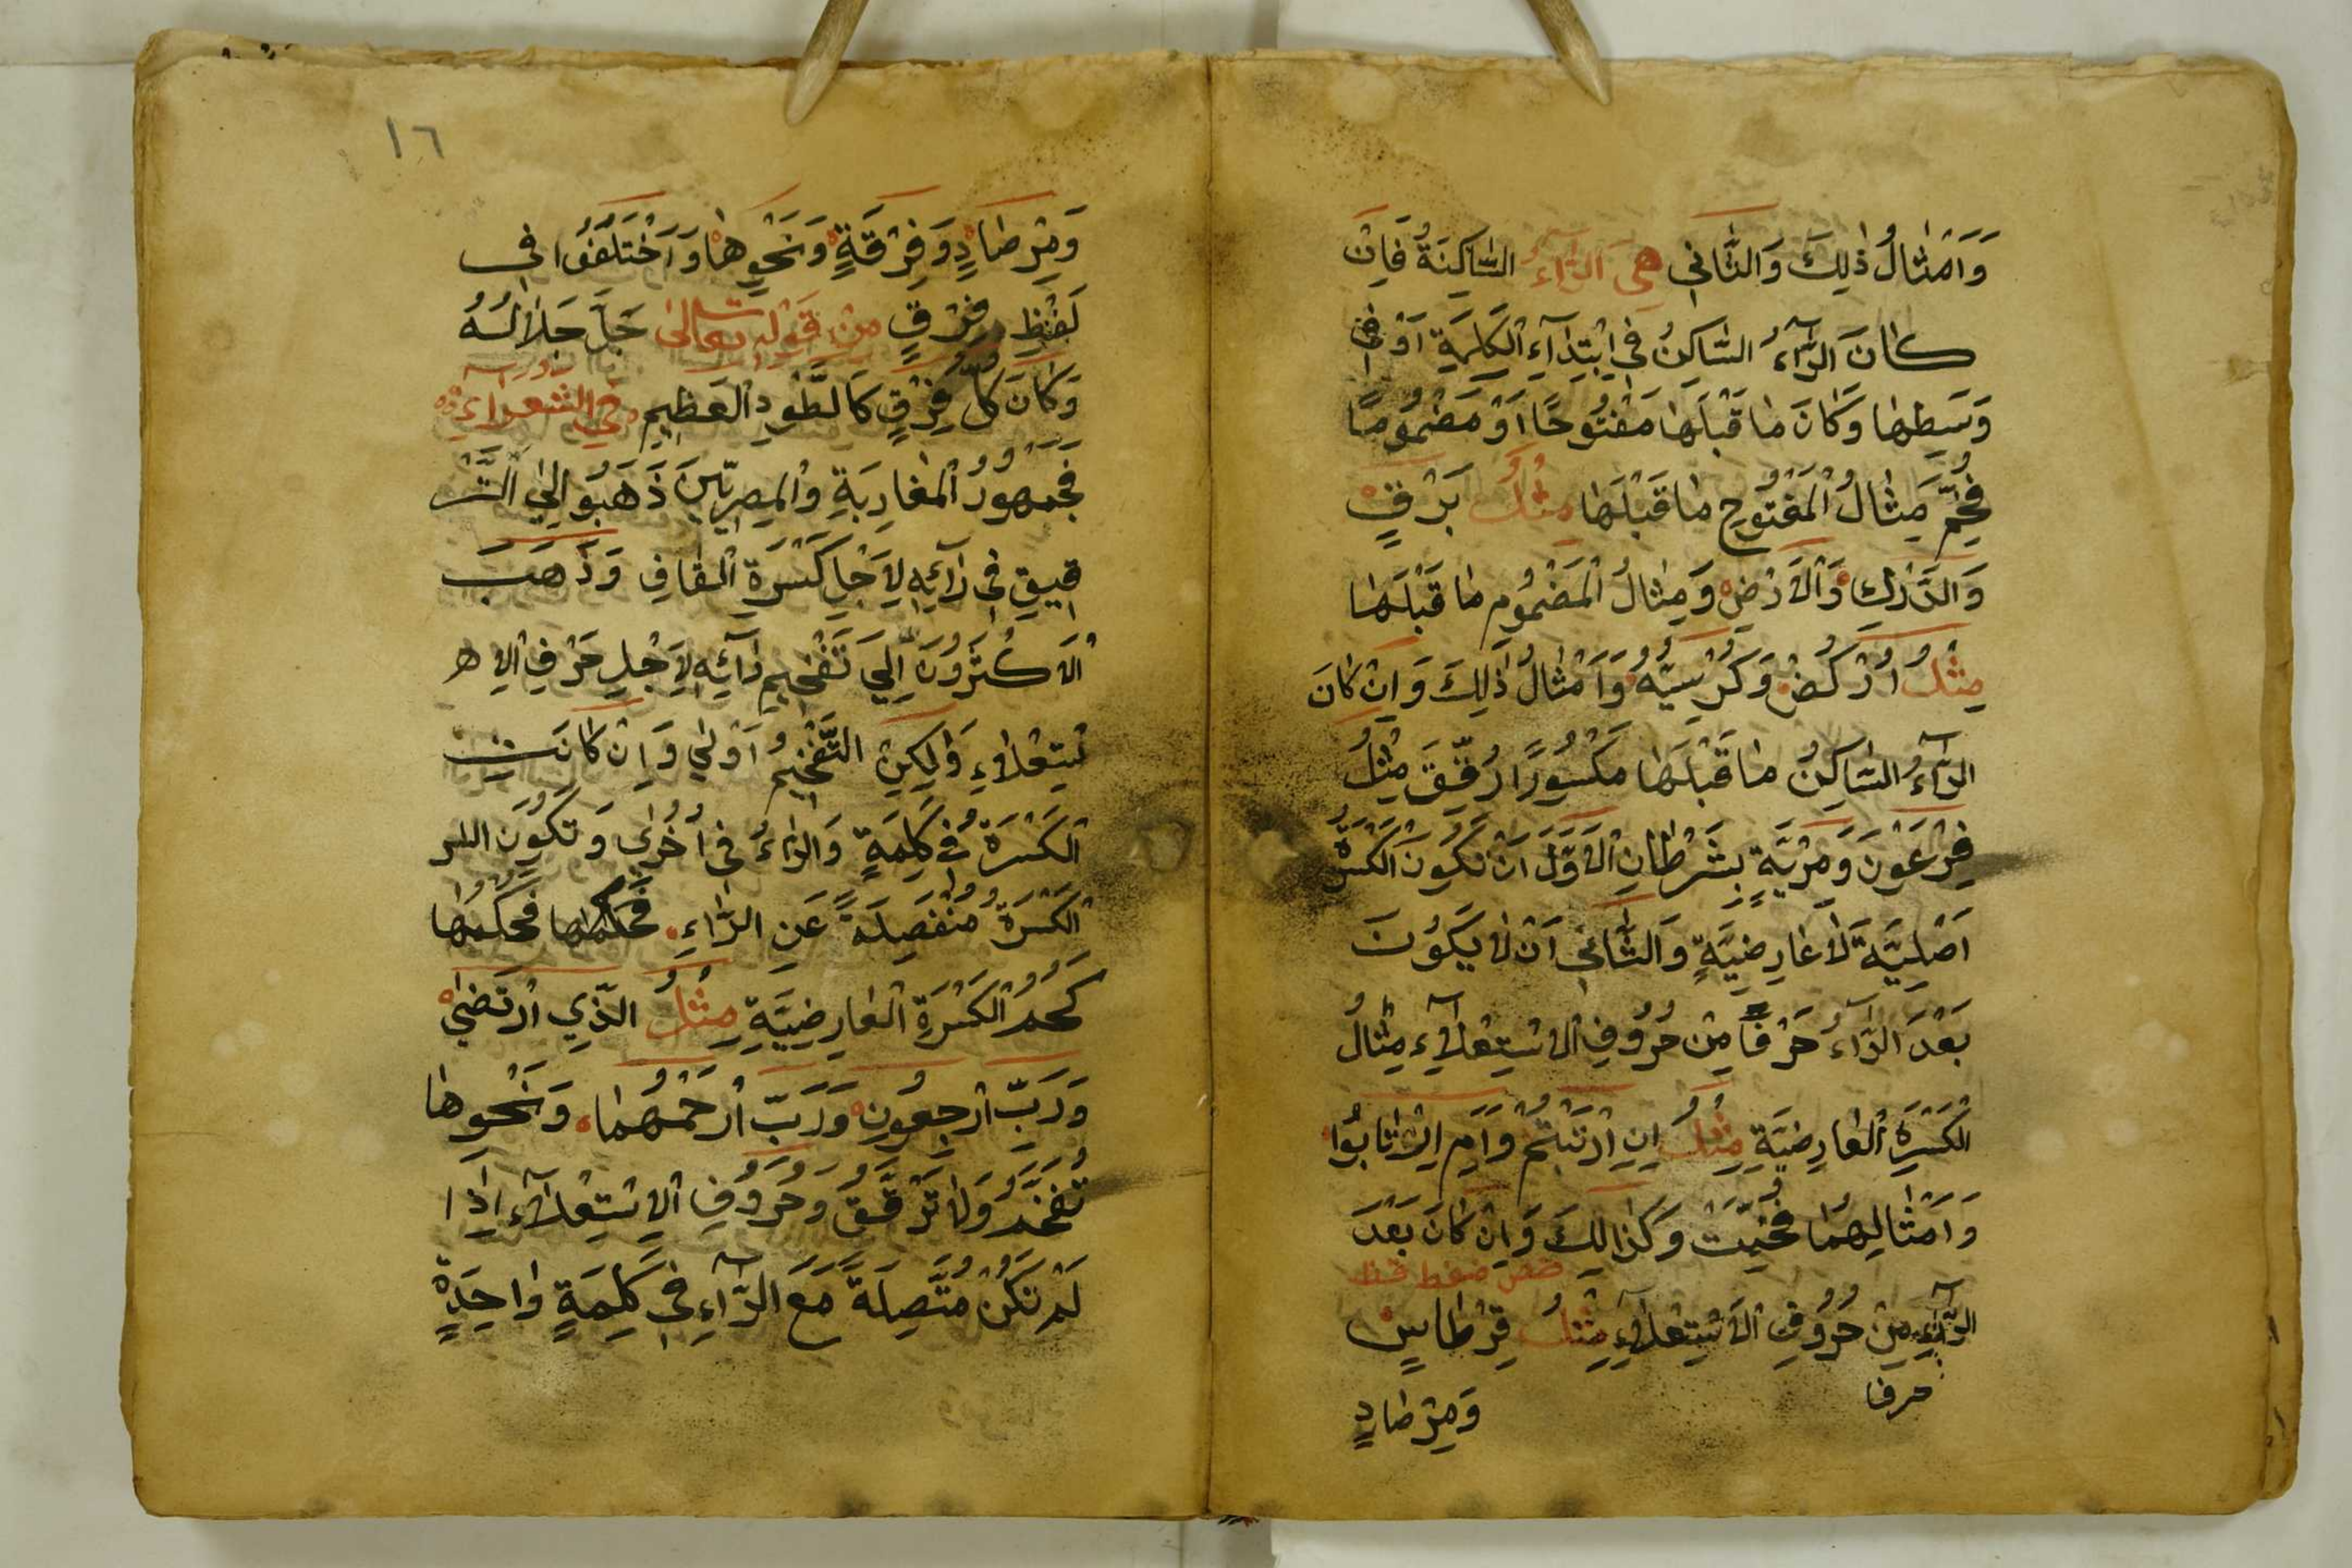 وَاَمْثٰالُ ذٰلِكَ وَالثّٰانِي هِيَ الرَّآءُ السّٰاكِنَةُ فَاِنْ
كٰانَ الرَّآءُ السّٰاكِنُ فِي ابْتِدَآءِ الْكَلِمَةِ اَوْ فِي
وَسَطِهٰا وَكَانَ مٰا قَبْلَهٰا مَفْتُوحًا اَوْ مَضْمُومًا
فُخِّمَ مِثٰالُ الْمَفْتُوحِ مٰا قَبْلَهٰا مِثْلُ بَرْقٍ
وَالدَّرْكِ وَالْاَرْضِ وَمِثٰالُ الْمَضْمُومِ مٰا قَبْلَهٰا
مِثْلُ اُرْكُضْ وَكُرْسِيُّهُ وَاَمْثٰالُ ذٰلِكَ وَاِنْ كٰانَ
الرَّآءُ السّٰاكِنُ مٰا قَبْلَهٰا مَكْسُورًا رُقِّقَ مِثْلُ
فِرْعَوْنَ وَمِرْيَةٍ بِشَرْطٰانِ الْاَوَّلُ اَنْ تَكُونَ الْكَسْرَةُ
اَصْلِيَّةً لٰا عٰارِضِيَّةٍ وَالثّٰانِي اَنْ لٰا يَكُونَ
بَعْدَ الرَّآءُ حَرْفًا مِنْ حُرُوفِ الْاِسْتِعْلٰآءِ مِثٰالُ
الْكَسْرَةِ الْعٰارِضِيَّةِ مِثْلُ اِنِ ارْتَبْتُمْ وَاَمِ ارْتٰابُوا
وَاَمْثٰالِهِمٰا فُخِّمَتْ وَكَذٰالِكَ وَاِنْ كٰانَ بَعْدَ
خص ضغط قظ
الرَّآءِ مِنْ حُرُوفِ الْاِسْتِعْلٰآءِ مِثْلُ قِرْطٰاسٍ
حرفا
وَمِرْصٰادٍ
١٦
وَمِرْصٰادٍ وَفِرْقَةٍ وَنَحْوِهٰا وَاَخْتَلَفُوا فِي
لَفْظِ فِرْقٍ مِنْ قَوْلِهِ تعالىٰ جَلَّ جَلٰالُهُ
وَكَانَ كُلُّ فِرْقٍ كَالطَّوْدِ الْعَظِيمِ فِي الشعرآء
فَجُمْهُورُ الْمَغٰارِبَةِ وَالْمِصِرِيّينَ ذَهَبُو اِلَي التَّر
قِيقِ فِي رٰآئِهِ لِاَجْلِ كَسْرَةِ الْقٰافِ وَذَهَبَ
الْاَكْثَرُونَ اِلَي تَفْخِيمِ رٰآئِهِ لِاَجْلِ حَرْفِ الْاِ هـ
سْتِعْلٰاءِ وَلٰكِنِ التَّفْخِيمُ اَوْلٰي وَاِنْ كٰانَتِ
الْكَسْرَةُ فِي كَلِمَةٍ وَالرّٰاءُ فِي اُخْرٰي وَتَكُونَ الر
الْكَسْرَةُ مُنْفَصِلَةً عَنِ الرّٰاءِ فحكمها فَحُكْمُهٰا
كَحُكْمُ الْكَسْرَةِ الْعٰارِضِيَّةِ مِثْلُ الَّذِي ارْتَضٰي
وَرَبِّ ارْجِعُونِ وَرَبِّ ارْحَمْهُمٰا وَنَحْوِهٰا
تُفَخَّمُ وَلٰا تُرَقَّقُ وَحُرُوفِ الْاِسْتِعْلٰآءِ اِذَا
لَمْ تَكُنْ مُتَّصِلَةً مَعَ الرَّآءِ فِي كَلِمَةٍ وٰاحِدَةٍ